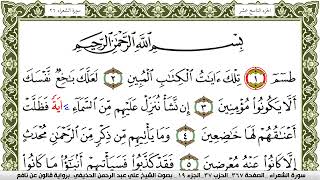 سورة الشعراء ٢٦ الجزء التاسع عشر
بِسْمِ اللَّهِ الرَّحْمَٰنِ الرَّحِيمِ
طسٓمٓ ١ تِلْكَ ءَايَٰتُ الْكِتَٰبِ الْمُبِينِ ٢ لَعَلَّكَ بَٰخِعٌ نَّفْسَكَ
أَلَّا يَكُونُوا مُؤْمِنِينَ ٣ إِن نَّشَأْ نُنَزِّلْ عَلَيْهِم مِّنَ السَّمَآءِ ايَةً فَظَلَّتْ
أَعْنَٰقُهُمْ لَهَا خَٰضِعِينَ ٤ وَمَا يَأْتِيهِم مِّن ذِكْرٍ مِّنَ الرَّحْمَٰنِ مُحْدَثٍ
إِلَّا كَانُوا عَنْهُ مُعْرِضِينَ ٥ فَقَدْ كَذَّبُوا فَسَيَأْتِيهِمْ أَنۢبَٰٓؤُا مَا كَانُوا
سورة الشعراء الصفحة ٣٦٧ الحزب ٣٧ الجزء ١٩ بصوت الشيخ علي عبد الرحمن الحذيفي برواية قالون عن نافع